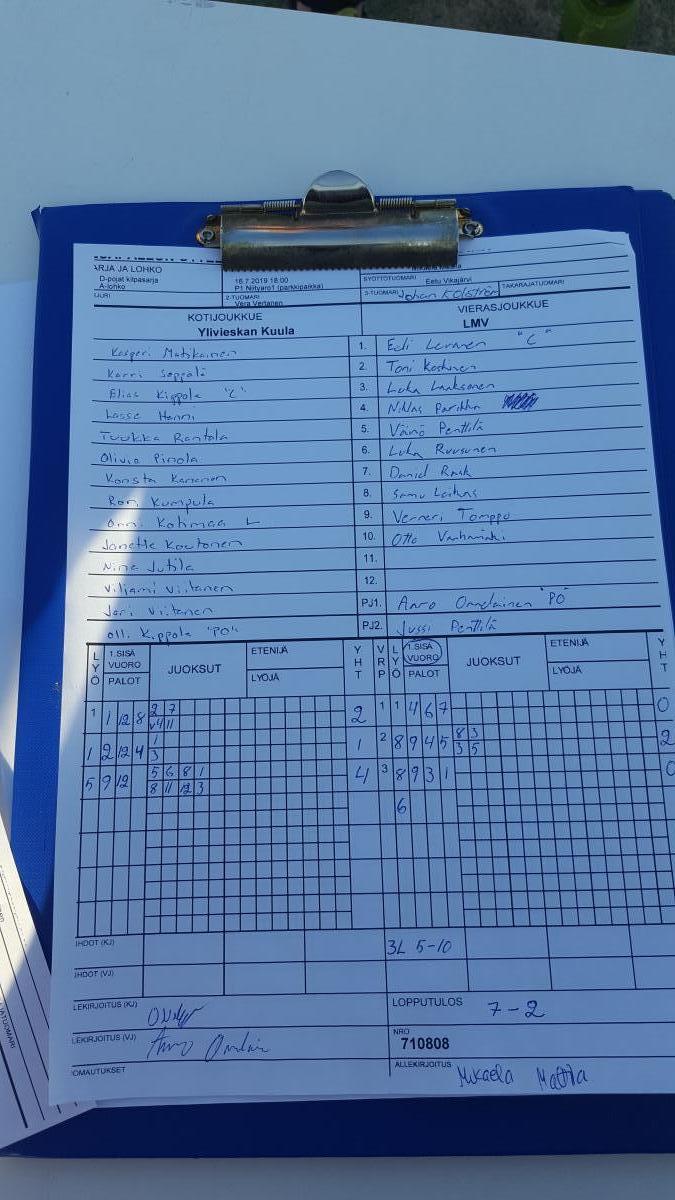 ARJA JA LOHKO
D-pojat kilpasarja
A-lohko
18.7.2019 18.00
P1 Niityaro1 (parkkipaikka)
SYÖTTÖTUOMARI
Eetu Vikajärvi
UURI
2-TUOMARI
Vera Vertanen
3-TUOMARI Johan Kolström
TAKARAJATUOMARI
KOTIJOUKKUE
Ylivieskan Kuula
VIERASJOUKKUE
LMV
Kasperi Matikainen 1. Eeli Leranen "C"
Karri Seppälä 2. Toni Koskinen
Elias Kippola "C" 3. Luka Laaksonen
Lasse Hanni 4. Niklas Parikka
Tuukka Rantala 5. Väinö Penttilä
Olivia Pinola 6. Luka Ruusunen
Konsta Kananen 7. Daniel Rask
Roni Kumpula 8. Samu
Onni Kotimaa L 9. Verneri Tomppo
Janette Koutonen 10. Otto Vanhamäki
Nina Jutila 11.
Viljami Viitanen 12.
Jari Viitanen PJ1. Arro "PO"
Olli Kippola "PO" PJ2. Jussi Penttilä
LYÖ 1.SISÄ VUORO PALOT JUOKSUT ETENIJÄ LYÖJÄ YHT VRP LYÖ 1.SISÄ VUORO PALOT JUOKSUT ETENIJÄ LYÖJÄ YHT
1 1 12 8 2 7 2 1 1 4 6 7 0
v4 11
1 2 12 4 1 1 2 8 9 4 5 8 3 2
3 3 5
5 9 12 5 6 8 1 4 3 8 9 3 1 0
8 11 12 3
6
IHDOT (KJ) 3L 5-10
IHDOT (VJ)
LEKIRJOITUS (KJ)
LOPPUTULOS 7-2
LEKIRJOITUS (VJ)
NRO
710808
OMAUTUKSET
ALLEKIRJOITUS Mikaela Mattila